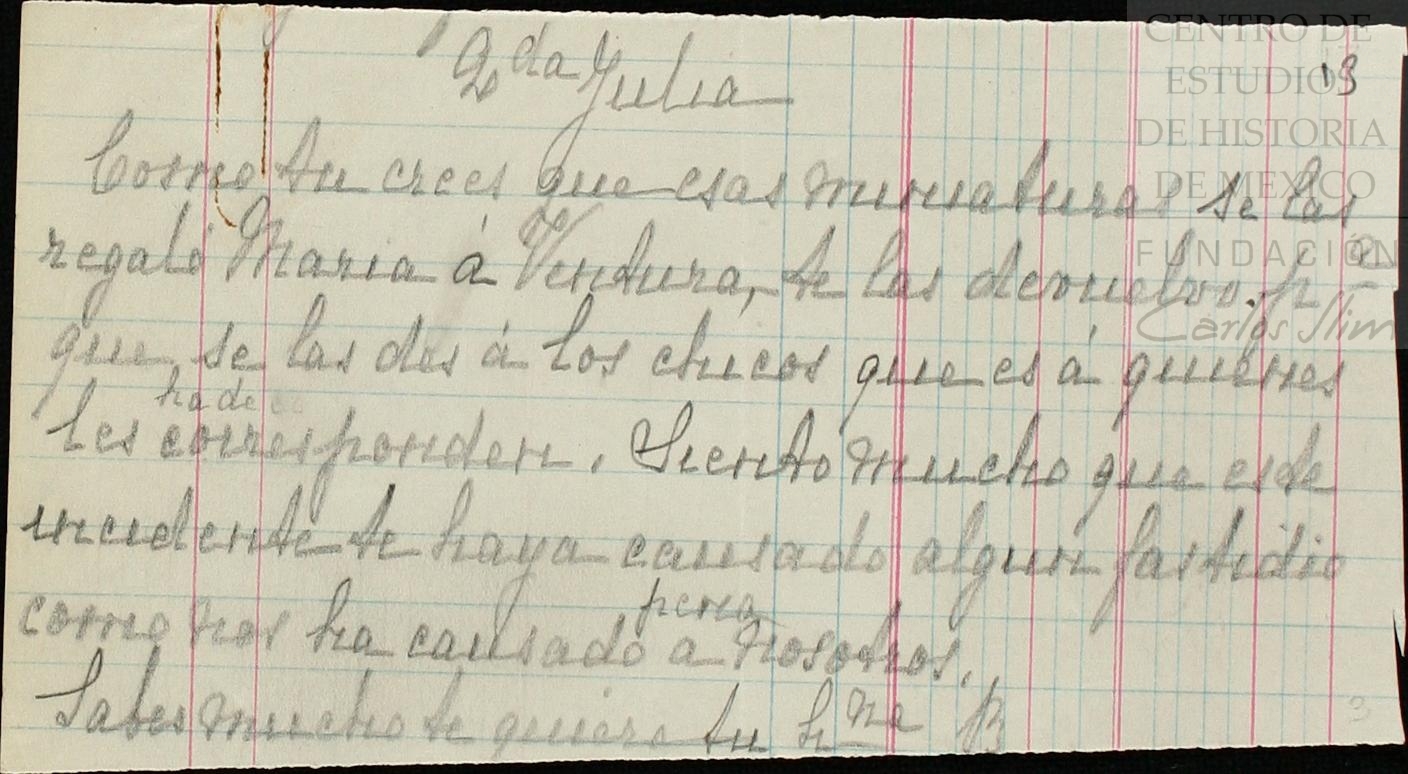 CENTRO DE
ESTUDIOS
DE HISTORIA
DE MEXICO
FUNDACIÓN
Carlos Slim
13
Qda Julia
Como tu crees que esas miniaturas se las
regaló Maria á Ventura, te las devuelvo pa
que se las des á los chicos que es á quienes
ha de
les corresponden. Siento mucho que este
incidente te haya causado algun fastidio
pena
como nos ha causado a nosotros.
Sabes mucho te quiere tu hna B
3